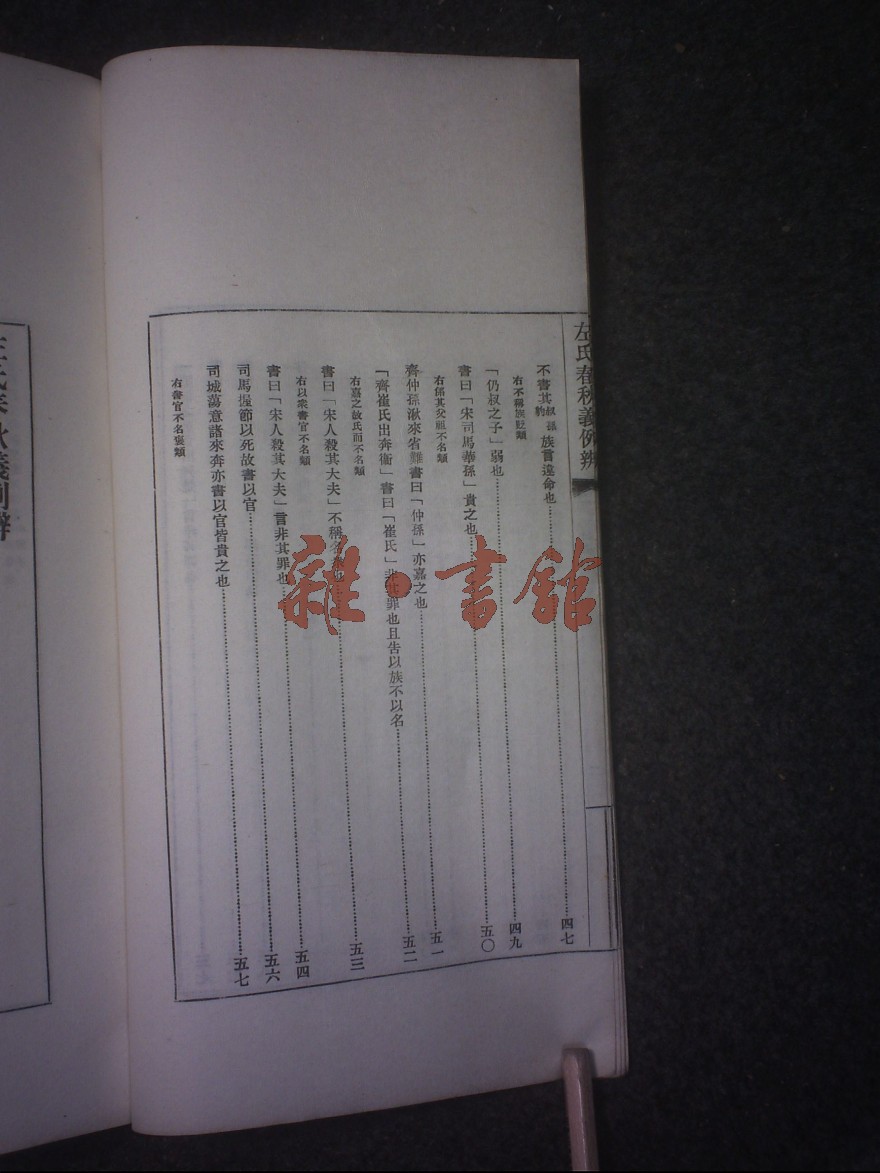 左氏春秋義例辨
不書其叔孫豹族言違命也 四七
右不稱族貶類
「仍叔之子」弱也 四九
書曰「宋司馬華孫」貴之也 五〇
右係其父祖不名類
齊仲孫湫來省難書曰「仲孫」亦嘉之也 五一
「齊崔氏出奔衞」書曰「崔氏」非其罪也且告以族不以名 五二
右嘉之故氏而不名類
書曰「宋人殺其大夫」不稱名 五三
右以衆書官不名類
書曰「宋人殺其大夫」言非其罪也 五四
司馬握節以死故書以官 五六
司城蕩意諸來奔亦書以官皆貴之也 五七
右書官不名褒類
雜·書館